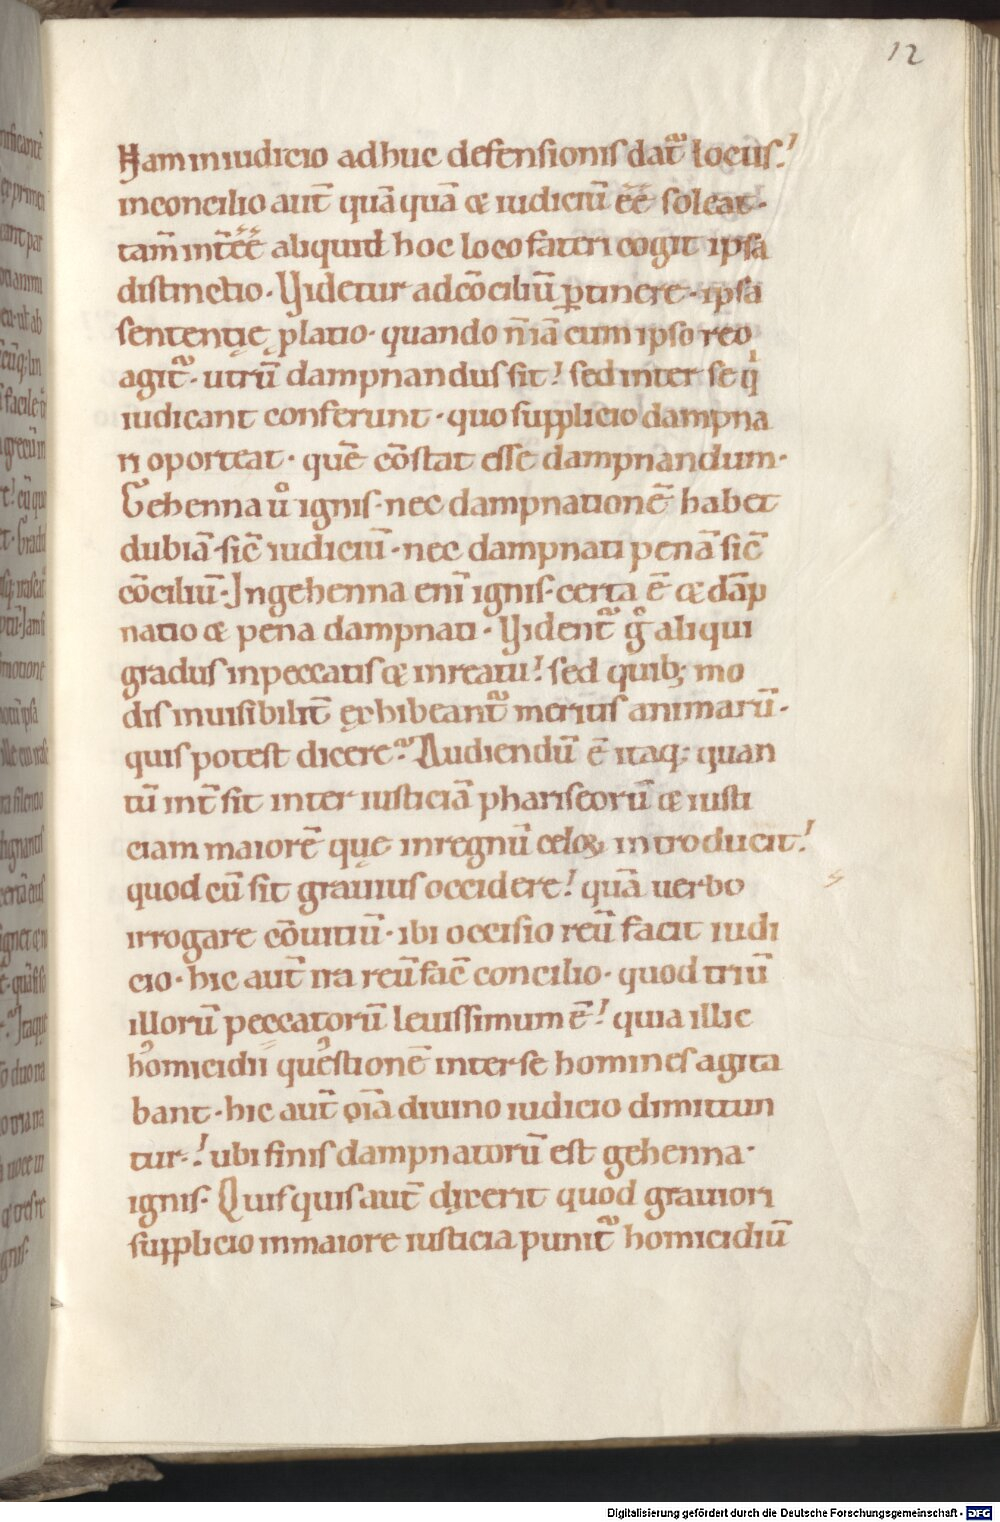 12
Nam in iudicio adhuc defensionis dat᷑ locus:
in concilio aut̄ quā quā & iudiciū ēē soleat·
tam̄ int̄ēē aliquid hoc loco fateri cogit ipsa
distinctio· Videtur ad cōciliū ꝑtinere· ipsa
sententię ꝓlatio· quando n̄ iā cum ipso reo
agit᷑· utrū dampnandus sit! sed inter se qͥ
iudicant conferunt· quo supplicio dampna
ri oporteat· quē cōstat esse dampnandum·
Gehenna ůº ignis· nec dampnationē habet
dubiā· sic̄ iudiciū· nec dampnati penā sic̄
cōciliū· In gehenna eni̅ ignis· certa ē & dāp
natio & pena dampnati· Vident᷑ gͦ aliqui
gradus in peccatis & in reatu! sed quib; mo
dis inuisibilit̄ exhibeant᷑ meritis animarū·
quis potest dicere? Audiendū ē itaq; quan
tū int̄ sit inter iusticiā phariseorū & iusti
ciam maiorē quę in regnū celoꝝ introducit!
quod cū sit grauius occidere! quā uerbo
irrogare cōuitiū· ibi occisio reū facit iudi
cio· hic aut̄ ira reū fac̄ concilio· quod triū
illorū peccatorū leuissimum ē! quia illic
homicidii quęstionē inter se homines agita
bant· hic aut̄ oīa diuino iudicio dimittun
tur·! ubi finis dampnatorū est gehenna·
ignis· Quisquis aut̄ dixerit quod grauiori
supplicio in maiore iusticia punit᷑ homicidiū
Digitalisierung gefördert durch die Deutsche Forschungsgemeinschaft - DFG